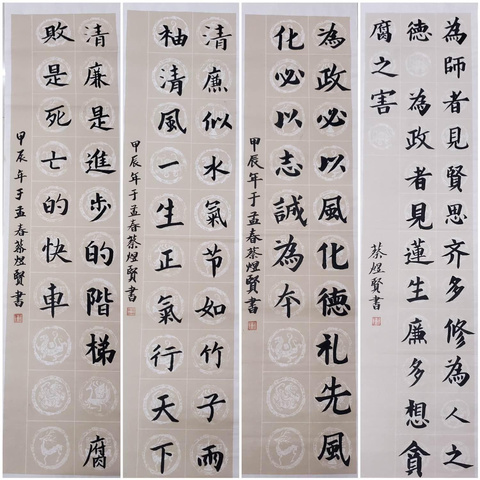 為師者見賢思齊多修為人之
德 為政者見蓮生廉多想貪
腐之害
蔡煜賢書
為政必以風化德礼先風
化必以志誠為夲
甲辰年于孟春蔡煜賢書
清廉似水氣节如竹子雨
袖清風一生正氣行天下
甲辰年于孟春蔡煜賢書
清廉是進步的階梯 腐
敗是死亡的快車
甲辰年于孟春蔡煜賢書